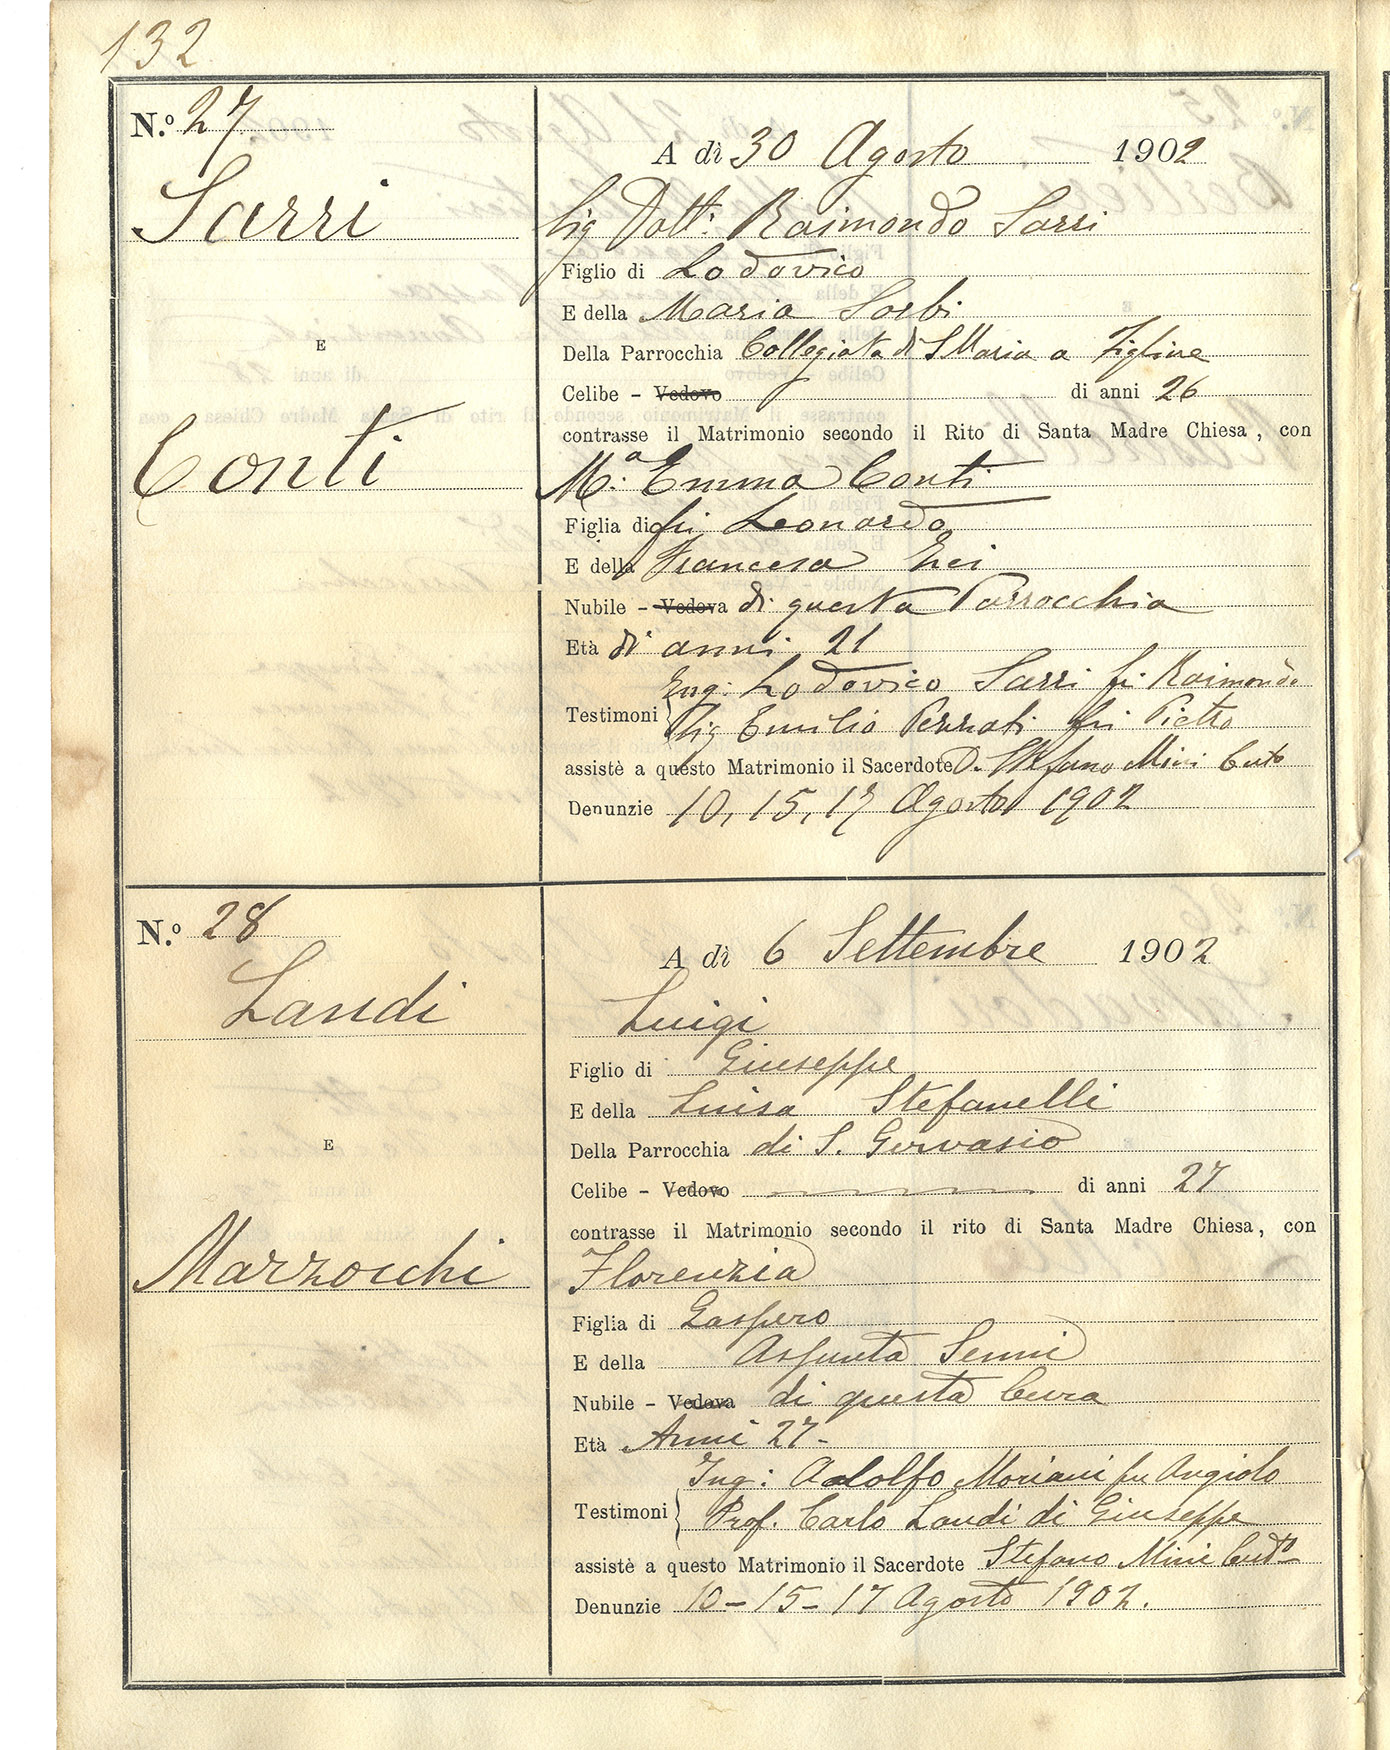 132
N.º 27
Sarri
E
Conti
A dì 30 Agosto 1902
Sig Dott: Raimondo Sarri
Figlio di Lodovico
E della Maria Sorbi
Della Parrocchia Collegiata di S Maria a Figline
Celibe - Vedovo di anni 26
contrasse il Matrimonio secondo il Rito di Santa Madre Chiesa, con
M.a Emma Conti
Figlia di fu Leonardo
E della Francesca
Nubile - Vedova di questa Parrocchia
Età di anni 21
Ing: Lodovico Sarri fu Raimondo
Testimoni Sig Emilio fu Pietro
assistè a questo Matrimonio il Sacerdote D. Stefano Mini
Denunzie 10, 15, 17 Agosto 1902
N.º 28
Landi
E
Marzocchi
A dì 6 Settembre 1902
Luigi
Figlio di Giuseppe
E della Luisa Stefanelli
Della Parrocchia di S. Gervasio
Celibe - Vedovo di anni 27
contrasse il Matrimonio secondo il rito di Santa Madre Chiesa, con
Florenzia
Figlia di Gaspero
E della Assunta Senni
Nubile - Vedova di questa Cura
Età Anni 27 -
Ing: Adolfo Moriani fu Angiolo
Testimoni Prof. Carlo Landi di Giuseppe
assistè a questo Matrimonio il Sacerdote Stefano Mini
Denunzie 10 - 15 - 17 Agosto 1902.